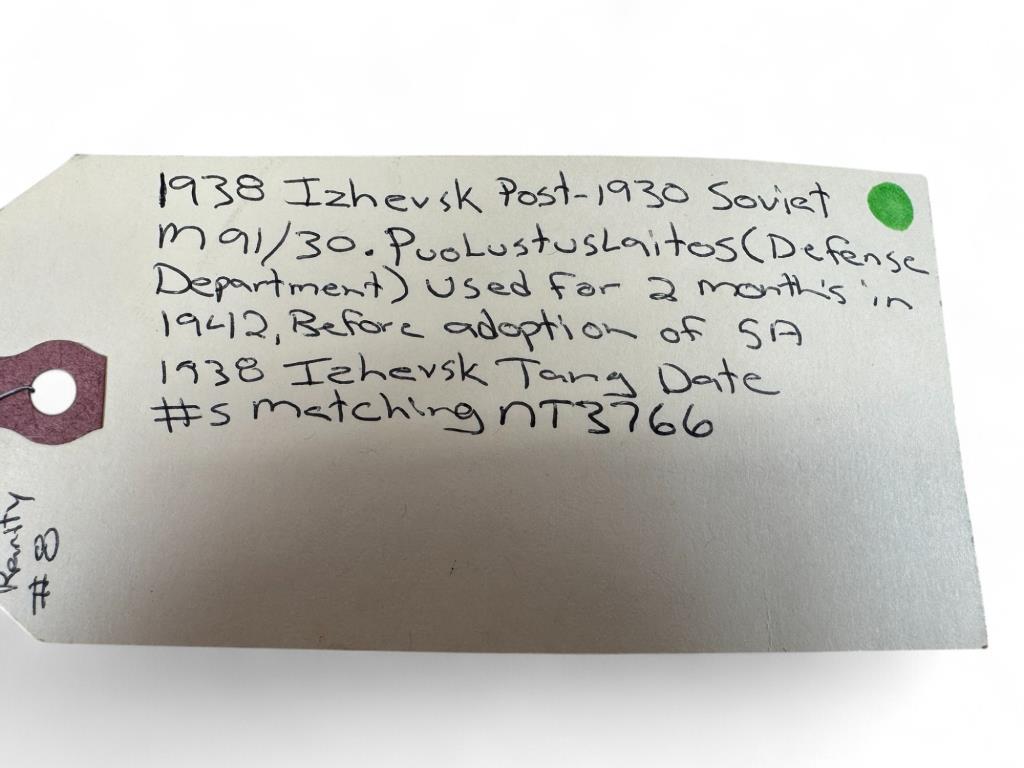 1938 Izhevsk Post-1930 Soviet
M91/30. PuoLustusLaitos (Defense
Department) Used for 2 month's in
1942, Before adoption of SA
1938 Izhevsk Tang Date
#s matching NT3766
Rarity
#8